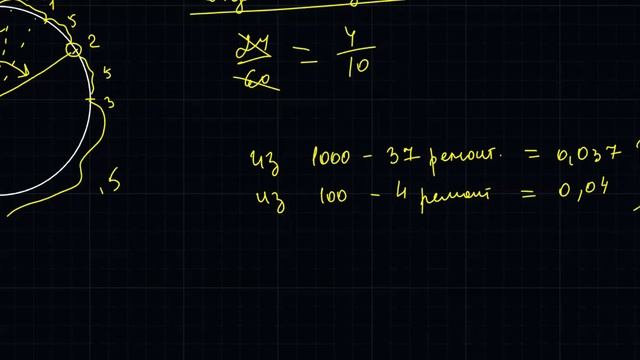 1
5
2
5
3
,5
24/60 = 4/10
из 1000 - 37 ремонт. = 0,037
из 100 - 4 ремонт = 0,04